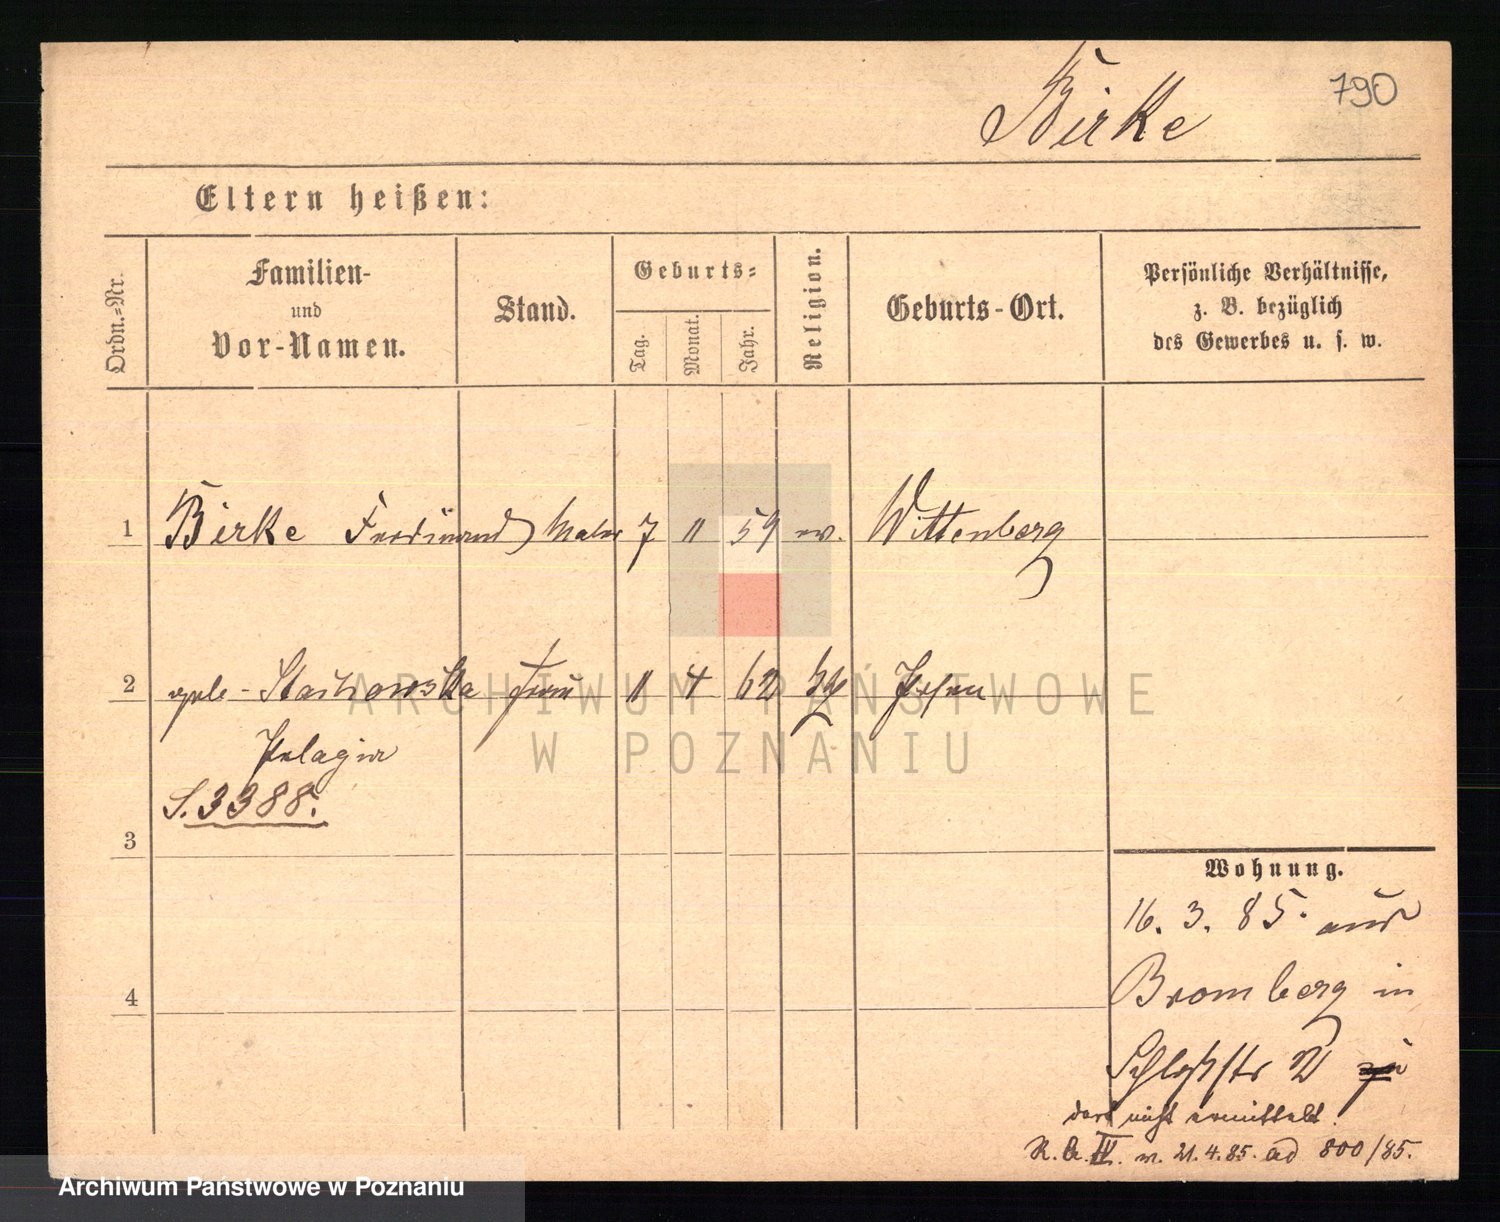 Birke
790
Eltern heißen:
Ordn.-Nr.
Familien-
und
Vor-Namen.
Stand.
Geburts-
Tag.
Monat.
Jahr.
Religion.
Geburts-Ort.
Persönliche Verhältnisse,
z. B. bezüglich
des Gewerbes u. s. w.
1 Birke Ferdinand Maler 7 11 59 ev. Wittenberg
2 geb. Stachowska Frau 11 4 62 Posen
Pelagia
S. 3388.
3
4
Wohnung.
16. 3. 85. aus
Bromberg in
Schloßstr 2
dort nicht ermittelt.
R. A. IV. v. 21.4.85. ad 800/85.
ARCHIWUM PAŃSTWOWE
W POZNANIU
Archiwum Państwowe w Poznaniu